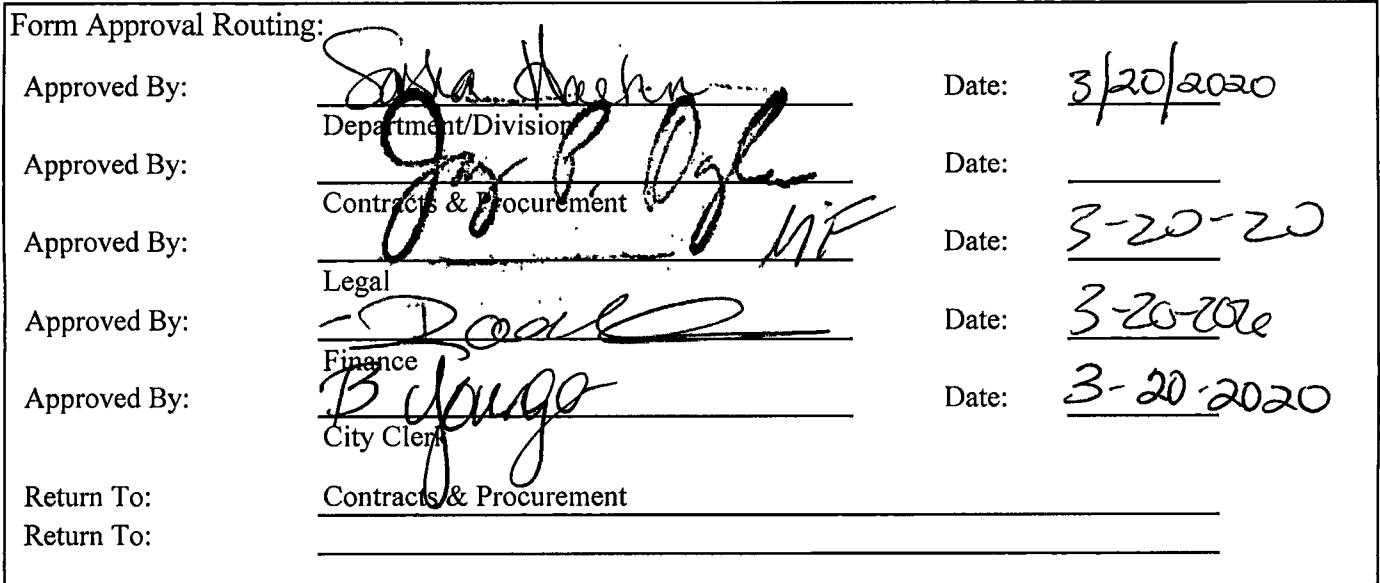 Form Approval Routing:
Approved By: Date: 3/20/2020
Department/Division
Approved By: Date:
Contracts & Procurement
Approved By: MF Date: 3-20-20
Legal
Approved By: Date: 3-20-2020
Finance
Approved By: B Young Date: 3-20-2020
City Clerk
Return To: Contracts & Procurement
Return To: